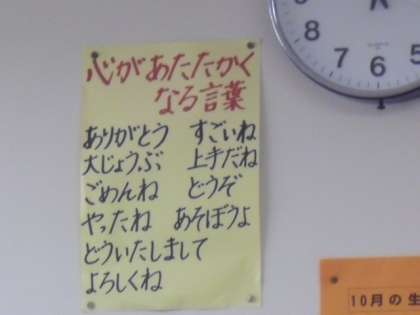 心があたたかく
なる言葉
ありがとう すごいね
大じょうぶ 上手だね
ごめんね どうぞ
やったね あそぼうよ
どういたしまして
よろしくね
8 7 6 5 4
10月の生